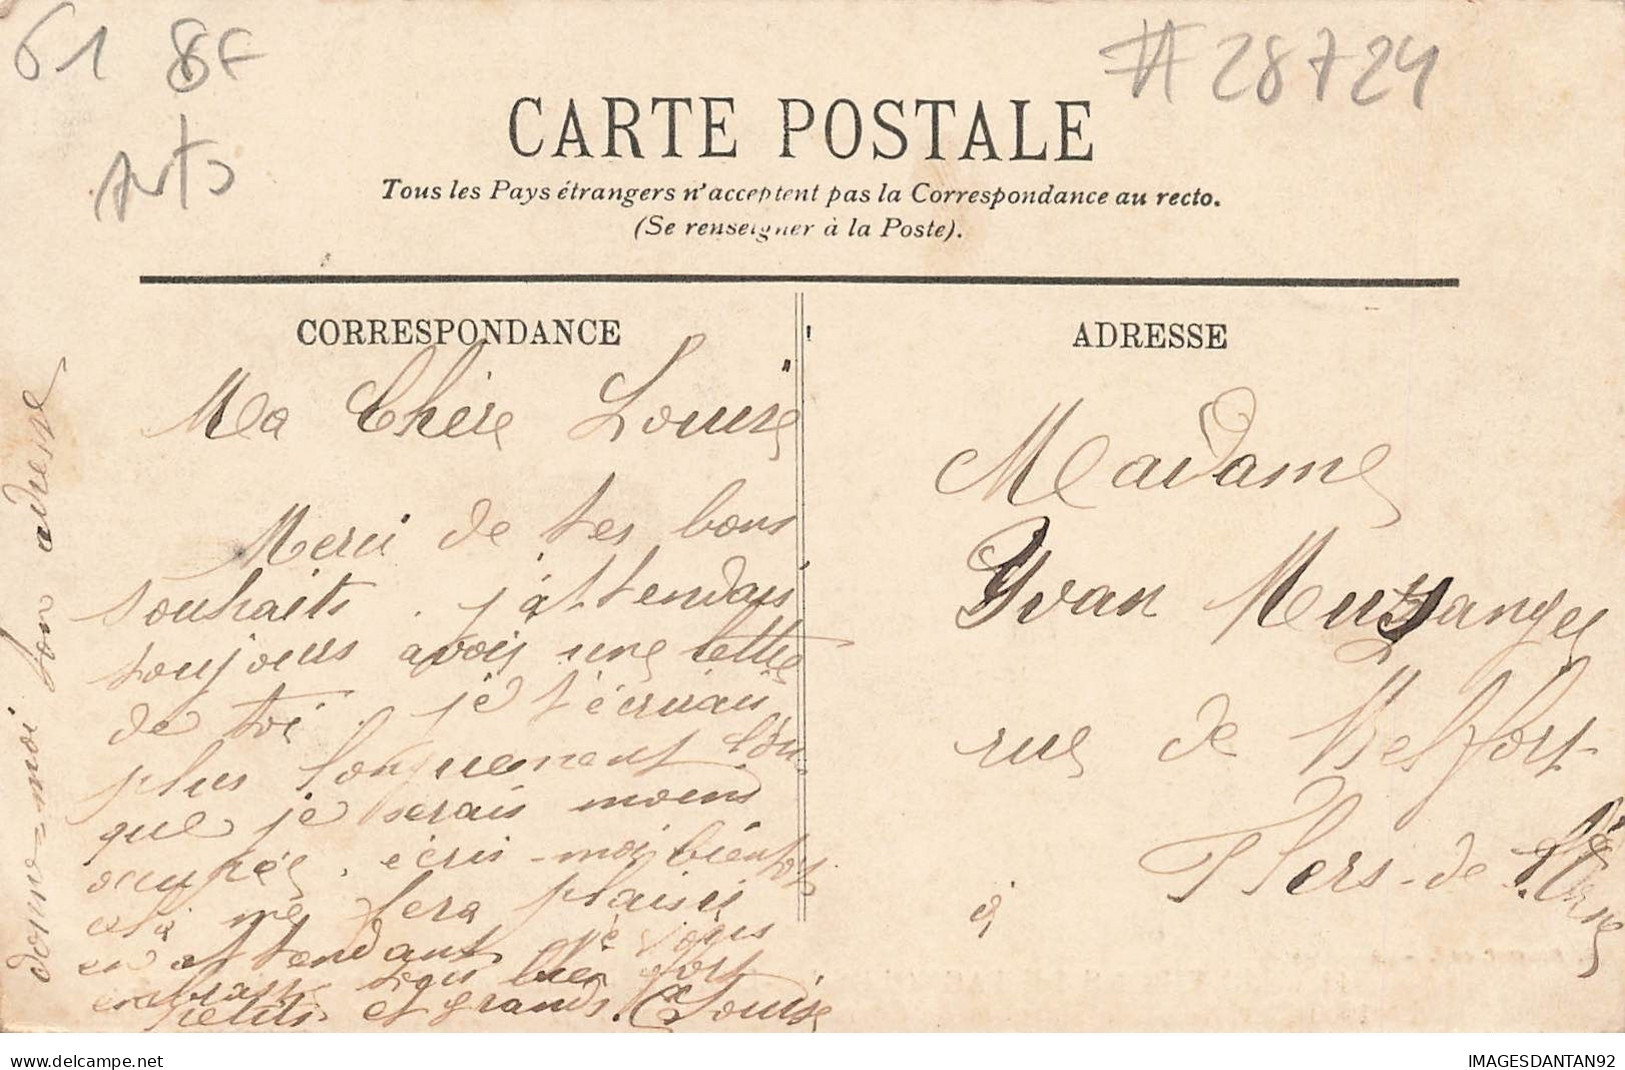 61 8F
Arts
#28724
CARTE POSTALE
Tous les Pays étrangers n'acceptent pas la Correspondance au recto.
(Se renseigner à la Poste).
CORRESPONDANCE
Ma Chère Louise
Merci de tes bons
souhaits. j'attendais
toujours avoir une lettre
de toi. je t'écrirais
plus longuement
que je serais moins
occupée. écris-moi bientôt
me fera plaisir
en attendant je vous
embrasse tous bien fort
petits et grands. Louise
donne-moi ton adresse
ADRESSE
Madame
Yvan
rue de Belfort
à Flers-de-l'Orne
www.delcampe.net
IMAGESDANTAN92